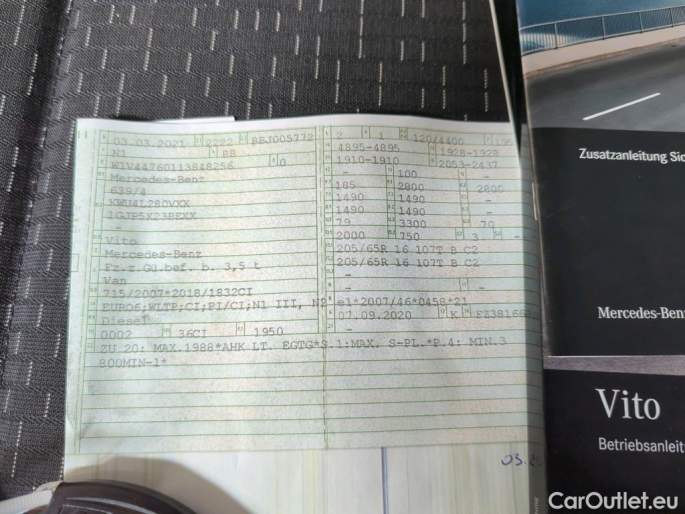 03.03.2021 2222 BBJ005772
N1 BB
W1V44760113848256 0
Mercedes-Benz
639/4
KWU4L280VXX
1GJP5X23BEXX
-
Vito
Mercedes-Benz
Fz.z.Gü.bef. b. 3,5 t
Van
715/2007*2018/1832CI
EURO6;WLTP;CI;PI/CI;N1 III, N2
Diesel
0002 36CI 1950
ZU 20: MAX.1988*AHK LT. EGTG*S.1:MAX. S-PL.*P.4: MIN.3
800MIN-1*
2 1 120/4400
4895-4895 1928-1928
1910-1910 2053-2437
- 100 -
185 2800 2800
1490 1490 -
1490 1490 -
79 3300 70
2000 750 3 -
205/65R 16 107T B C2
205/65R 16 107T B C2
-
-
e1*2007/46*0458*21
07.09.2020 K
03.
Zusatzanleitung
Mercedes-Benz
Vito
CarOutlet.eu